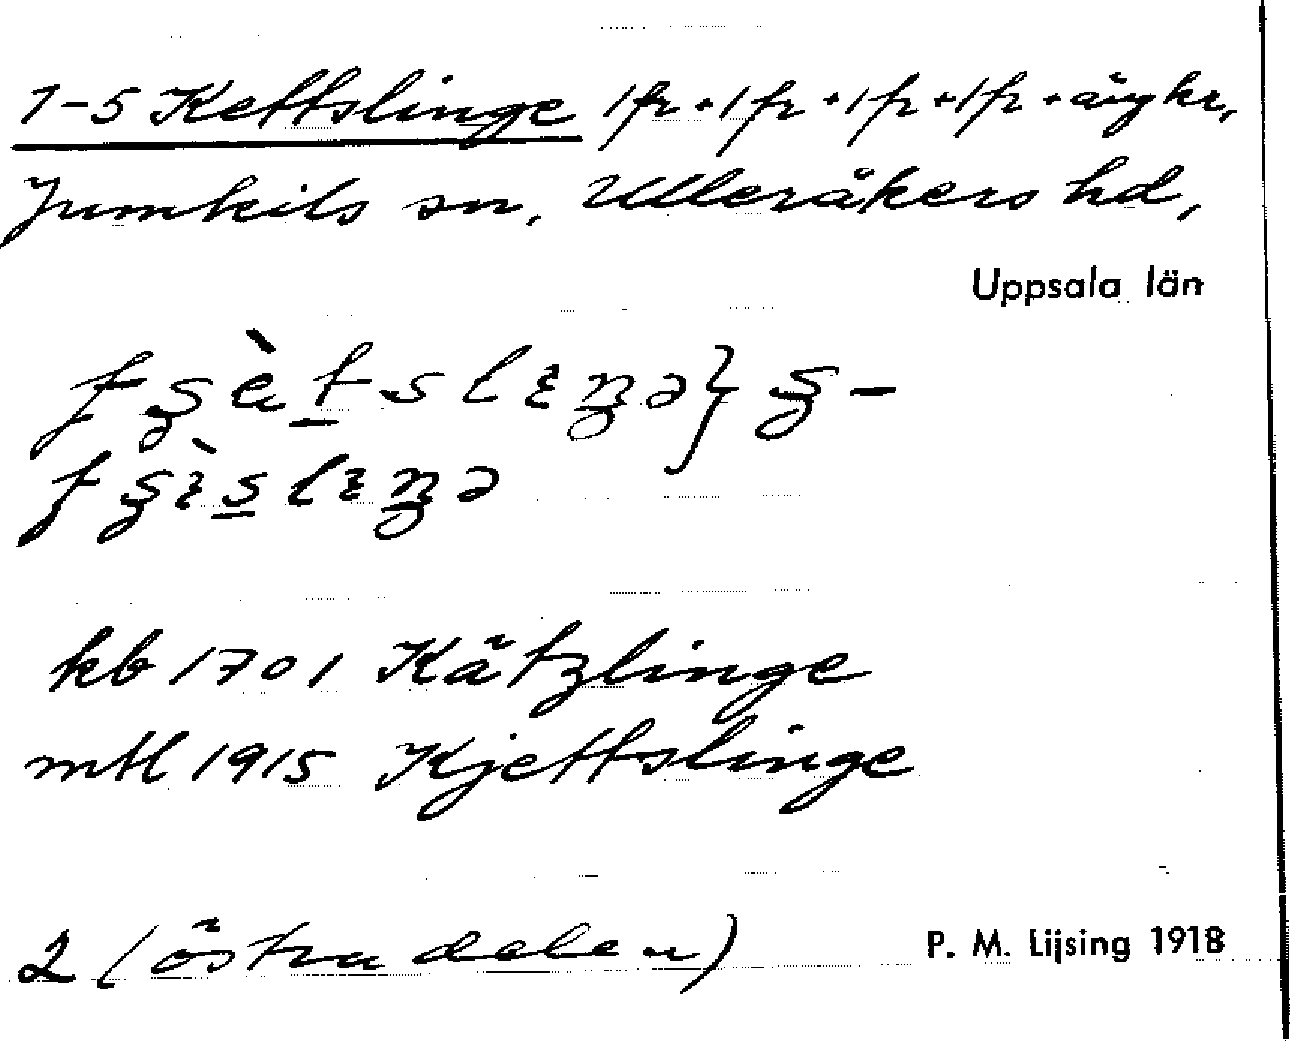 1-5 Kettslinge 1 fr + 1 fr + 1 fr + 1 fr + ägkr,
Jumkils sn, Ulleråkers hd,
Uppsala län
kb 1701 Kätzlinge
mtl 1915 Kjettslinge
2 (östra delen)
P. M. Lijsing 1918